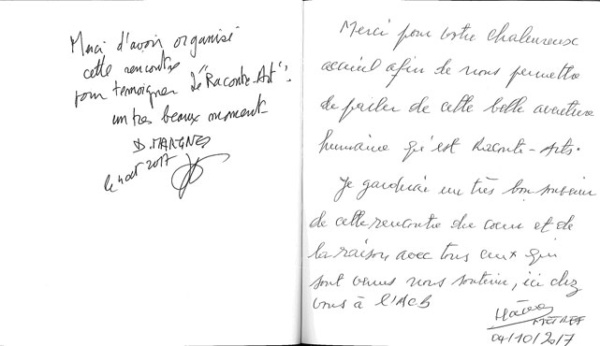 Merci d'avoir organisé
cette rencontre
pour temoigner de "Raconte-Art".
un tres beaux moment
D. MARGNES
le 4 oct 2017
Merci pour votre chaleureux
accueil afin de nous permettre
de parler de cette belle aventure
humaine qu'est Raconte-Arts.
Je garderai un très bon souvenir
de cette rencontre du coeur et de
la raison avec tous ceux qui
sont venus nous soutenir, ici chez
vous à l'ACB
METREF
04/10/2017